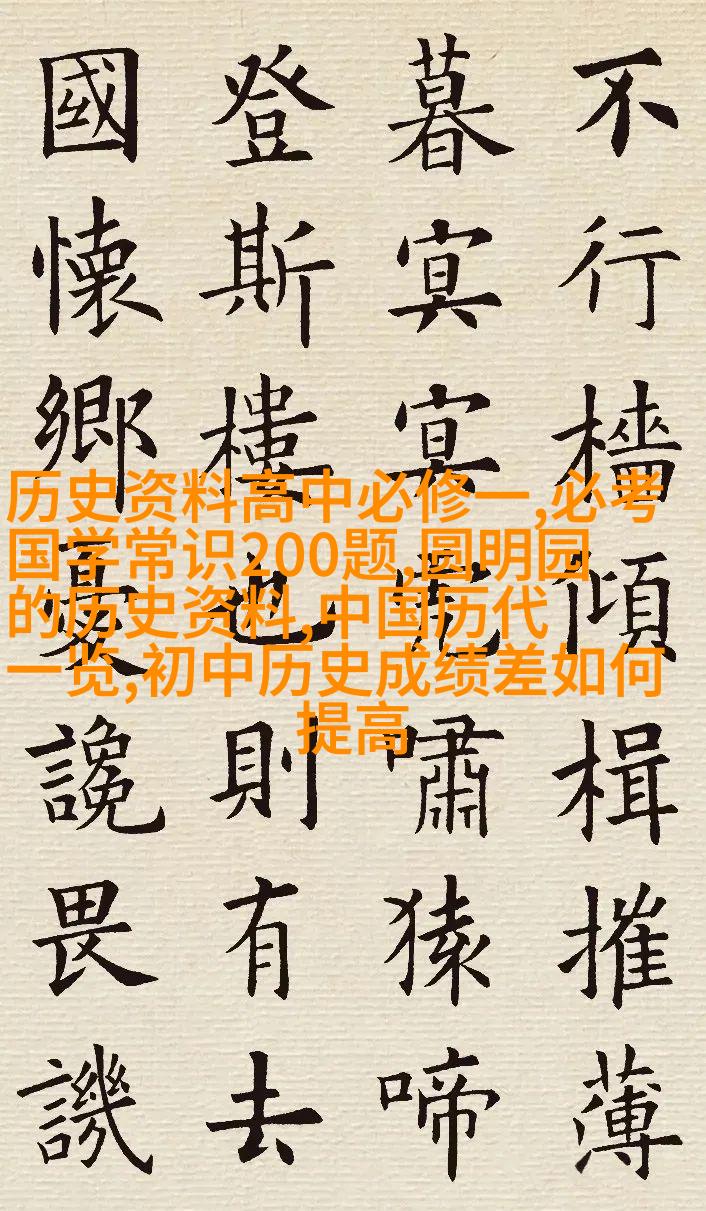 不行檣傾楫摧薄
暮冥冥虎嘯猿啼
登斯樓也則有去
國懷鄉憂讒畏譏
历史资料高中必修一,必考
国学常识200题,圆明园
的历史资料,中国历代
一览,初中历史成绩差如何
提高